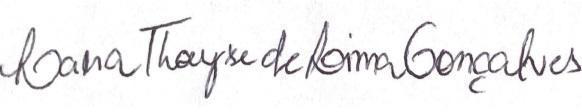 Lana Thayse de Lima Gonçalves